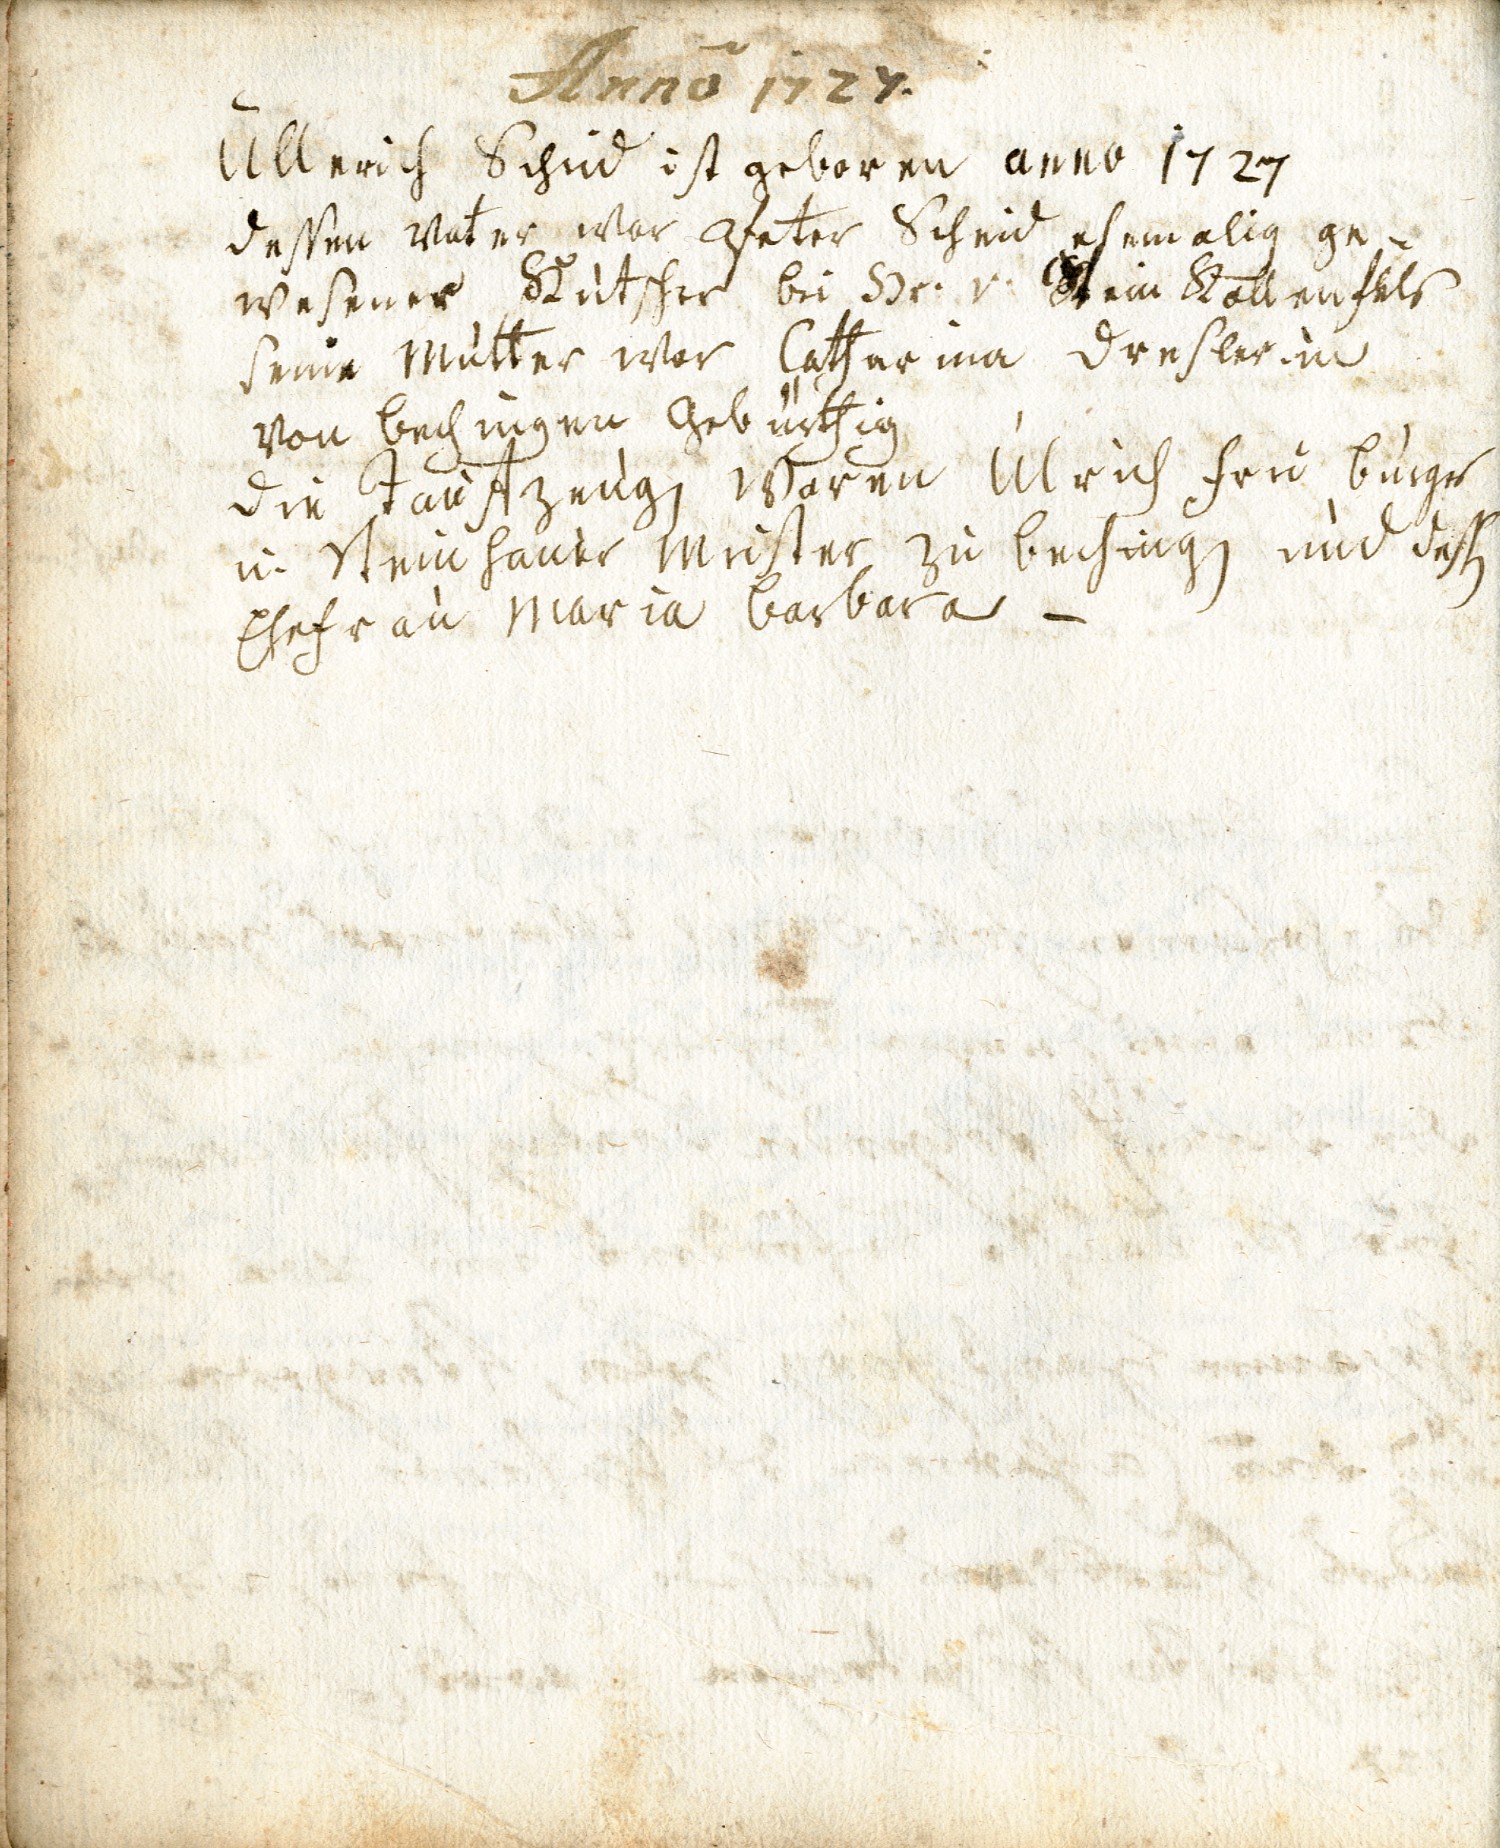 Anno 1727.
Ullerich Scheid ist geboren anno 1727
dessen Vater war Peter Scheid ehemalig ge-
wesener Kutscher bei Hr. v. Stein Kallenfels
seine Mutter war Catharina Dreslerin
von bechingen Gebürthig
die Taufzeugen waren Ulrich frei burger
u. Steinhauer Meister zu bechingen und dessen
Ehefrau Maria barbara –